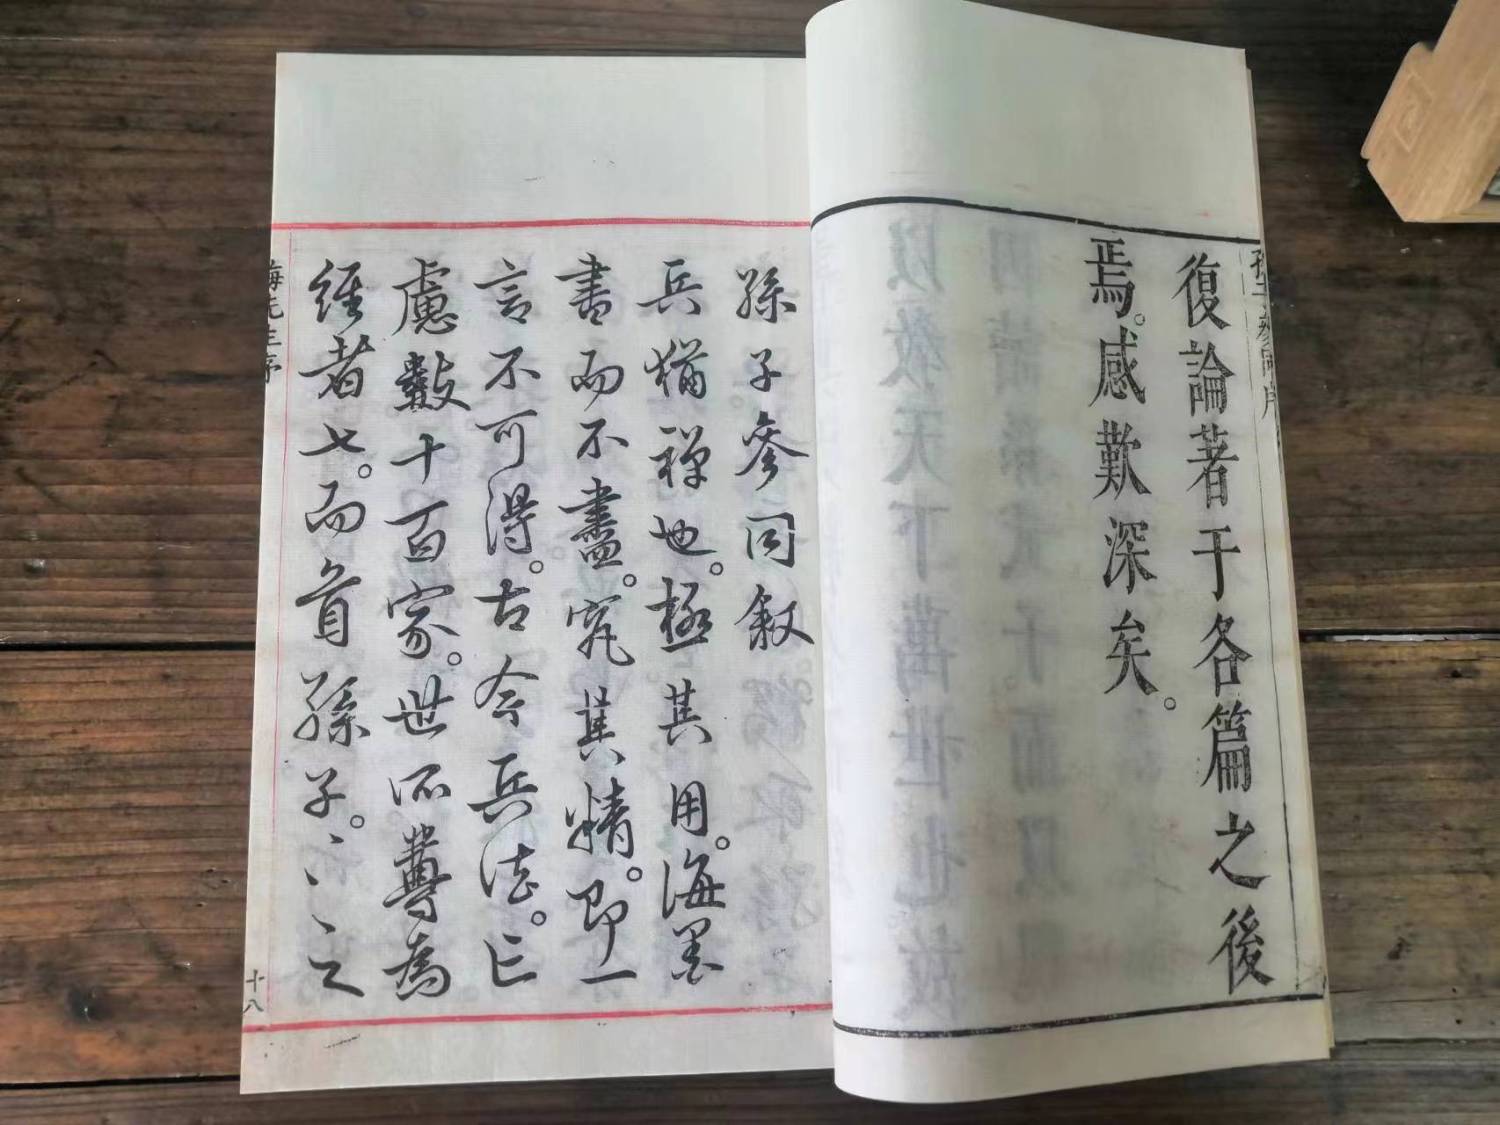 復論著于各篇之後
焉。感歎深矣。
孫子參同敘
兵猶禪也。極其用。海墨
書而不盡。究其精。即一
言不可得。古今兵法。亡
慮數十百家。世所尊為
經者七。而首孫子。〻〻之
梅先生序
十八